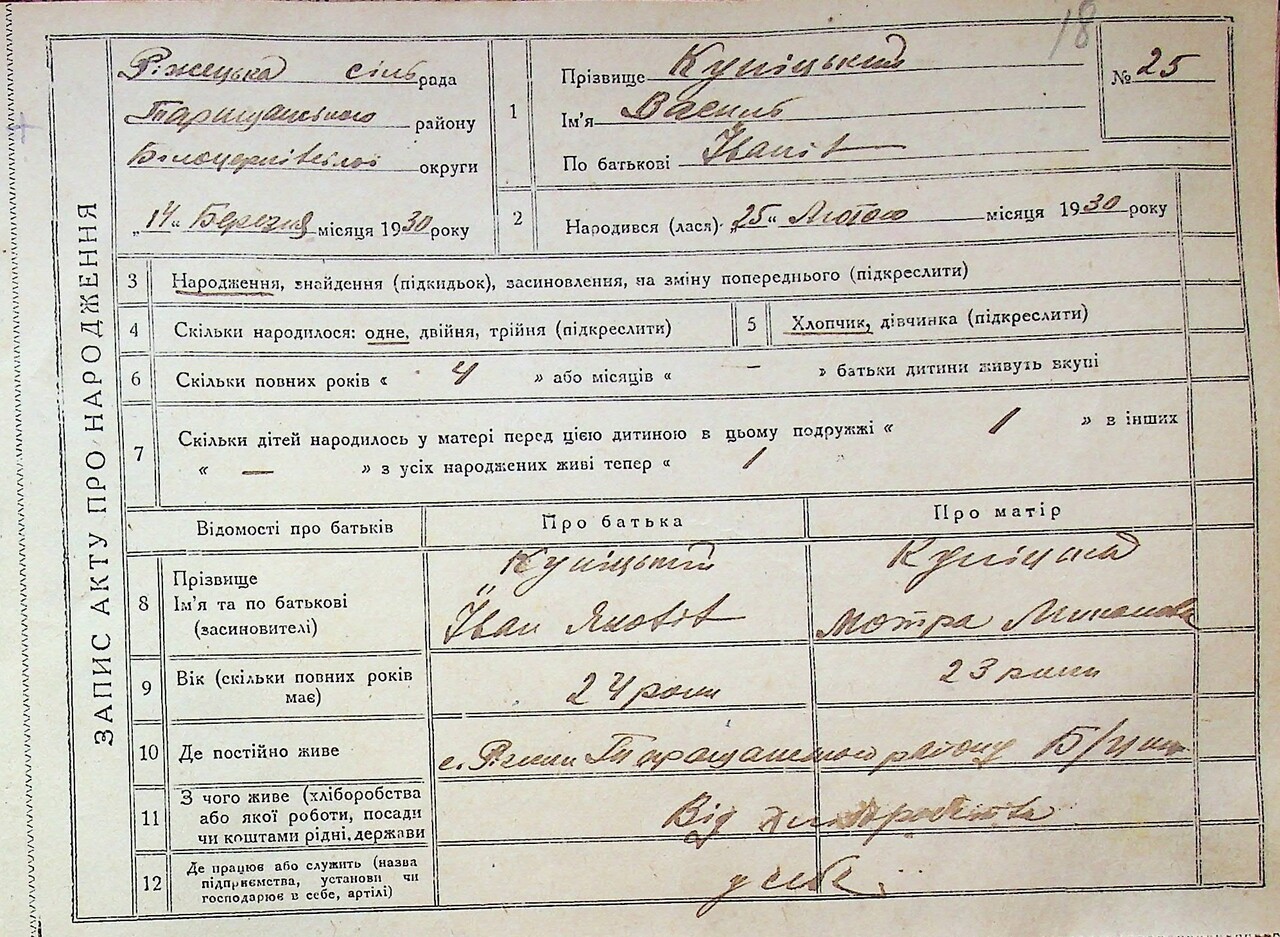 18
ЗАПИС АКТУ ПРО НАРОДЖЕННЯ
Ріжецька сільрада
Таращанського району
Білоцерківської округи
„14“ Березня місяця 1930 року
1
Прізвище Купіцький
Ім'я Василь
По батькові Іваніт
№ 25
2
Народився (лася) „25“ Лютого місяця 1930 року
3 Народження, знайдення (підкидьок), засиновлення, на зміну попереднього (підкреслити)
4 Скільки народилося: одне, двійня, трійня (підкреслити)
5 Хлопчик, дівчинка (підкреслити)
6 Скільки повних років « 4 » або місяців « – » батьки дитини живуть вкупі
7 Скільки дітей народилось у матері перед цією дитиною в цьому подружжі « 1 » в інших
« — » з усіх народжених живі тепер « 1
Відомості про батьків Про батька Про матір
8 Прізвище
Ім'я та по батькові
(засиновителі)
Купіцький
Іван
Мотра
9 Вік (скільки повних років
має)
24 роки
23 роки
10 Де постійно живе
с. Ріжки Таращанського району Б/Церк
11 З чого живе (хліборобства
або якої роботи, посади
чи коштами рідні, держави
Від хліборобства
12 Де працює або служить (назва
підприємства, установи чи
господарює в себе, артілі)
у себе